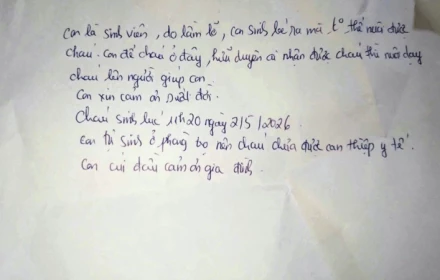 con là sinh viên, do lầm lỡ, con sinh bé ra mà k° thể nuôi được
cháu. Con để cháu ở đây, hữu duyên cô nhận được cháu thì nuôi dạy
cháu lên người giúp con.
Con xin cảm ơn suốt đời.
Cháu sinh lúc 11h20 ngày 2/5/2026
Con tự sinh ở phòng trọ nên cháu chưa được can thiệp y tế.
Con cúi đầu cảm ơn gia đình.